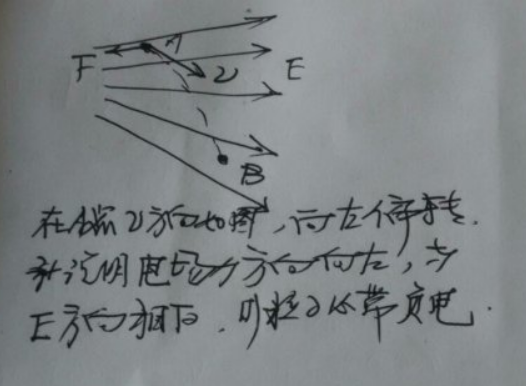 F A υ E
B
在A点υ方向如图，向左偏转.
就说明电场力方向向左，与
E方向相反.则粒子必带负电.